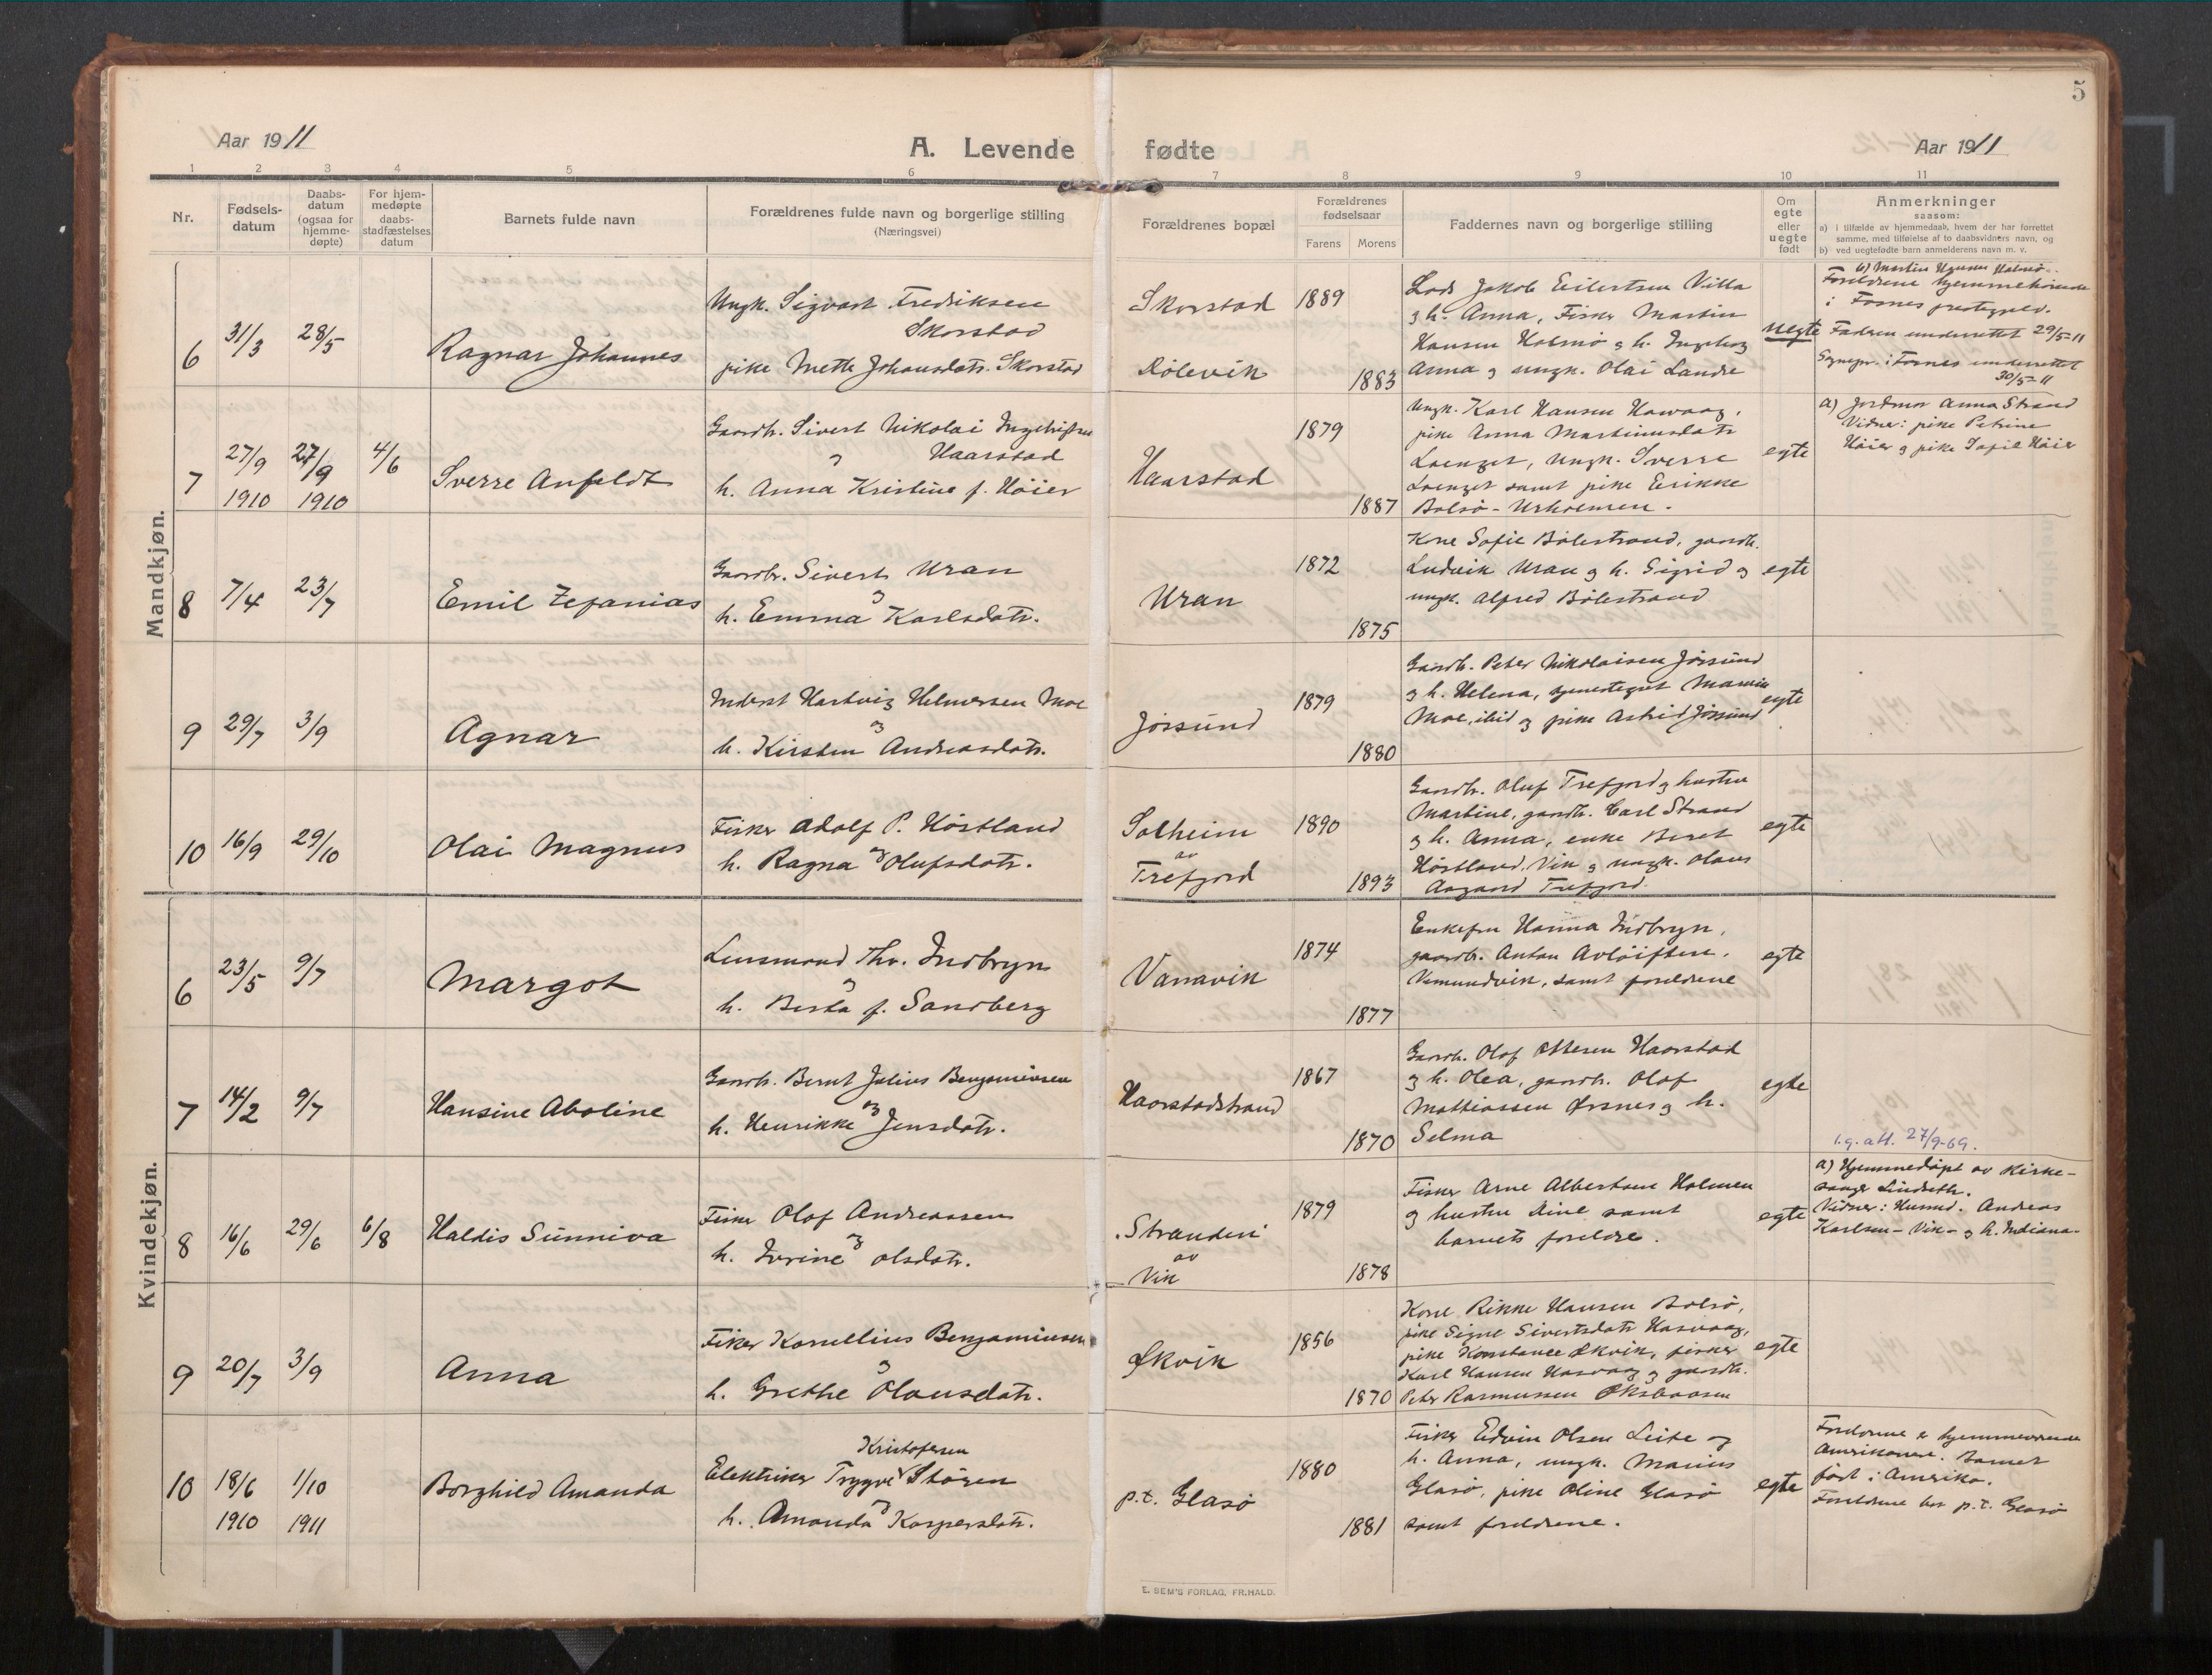 5
Aar 1911
A. Levende fødte
Aar 1911
1 2 3 4 5 6 7 8 9 10 11
Nr.
Fødsels-
datum
Daabs-
datum
(ogsaa for
hjemme-
døpte)
For hjem-
medøpte
daabs-
stadfæstelses
datum
Barnets fulde navn
Forældrenes fulde navn og borgerlige stilling
(Næringsvei)
Forældrenes bopæl
Forældrenes
fødselsaar
Farens Morens
Faddernes navn og borgerlige stilling
Om
egte
eller
uegte
født
Anmerkninger
saasom:
a) i tilfælde av hjemmedaab, hvem der har forrettet
samme, med tilføielse af to daabsvidners navn, og
b) ved uegtefødte barn anmelderens navn m. v.
Mandkjøn.
6 31/3 28/5
Ragnar Johannes
Ungk. Sigvart Fredriksen
Skorstad
pike Mette Johansdatr. Skorstad
Skorstad
Rölevik
1889
1883
Lods Jakob Eilertsen Villa
og h. Anna, Fisker Martin
Hansen Holmö og h. Ingeborg
Anna og ungk. Olai Landre
uegte
b) Martin Hansen Holmö.
Foreldrene hjemmehörende
i Fosnes prestegjeld.
Faderen underrettet 29/5-11
Sognepr. i Fosnes underrettet
30/5-11
7 27/9 27/9 4/6
1910 1910
Sverre Anfeldt
Gaardbr. Sivert Nikolai Ingebrigtsen
og Haarstad
h. Anna Kristine f. Höier
Haarstad
1879
1887
Ungk. Karl Hansen
pike Anna Martinusdatr
ungk. Sverre
samt pike Erikke
Bolsö -
egte
a) Jordmor Anna Strand
Vidner: pike Petrine
Höier og pike Sofie Höier
8 7/4 23/7
Emil Zefanias
Gaardbr. Sivert Uran
og
h. Emma Karlsdatr.
Uran
1872
1875
Kone Sofie Bölestrand, gaardb.
Ludvik Uran og h. Sigrid og
ungk. Alfred Bölestrand
egte
9 29/7 3/9
Agnar
Inderst Hartvig Helmersen Moe
og
h. Kirsten Andreasdatr.
Jörsund
1879
1880
Gaardb. Peter Nikolaisen Jörsund
og h. Helena, tjenestegut Marius
Moe, ibid og pike Astrid Jörsund
egte
10 16/9 29/10
Olai Magnus
Fisker Adolf P. Höstland
og
h. Ragna Olufsdatr.
Solheim
av
Trefjord
1890
1893
Gaardbr. Oluf Trefjord og hustru
Martine, gaardb. Carl Strand
og h. Anna, enke Beret
Höstland, Vik og ungk. Olaus
Aagaard Trefjord.
egte
Kvindekjøn.
6 23/5 9/7
Margot
Lensmand Thv. Indbryn
og
h. Berta f. Sandberg
Vanavik
1874
1877
Enkefru Hanna Indbryn,
gaardb. Anton Avlöiftsen,
Vemundvik, samt foreldrene
egte
7 14/2 9/7
Hansine Aboline
Gaardb. Bernt Julius Benjaminsen
og
h. Henrikke Jensdatr.
Haarstadstrand
1867
1870
Gaardb. Olof Ottesen Haarstad
og h. Olea, gaardb. Olof
Mathiassen Ørsnes og h.
Selma
egte
27/9-69.
8 16/6 29/6 6/8
Haldis Sunniva
Fisker Olof Andreassen
og
h. Jörine Olsdatr.
Stranden
av
Vik
1879
1878
Fisker Arne Albertsen Holmen
og hustru Dine samt
barnets foreldre.
egte
a) Hjemmedöpt av Kirke-
sanger Lindseth.
Vidner: Husmd. Andreas
Karlsen - Vik - og h. Indiana
9 20/7 3/9
Anna
Fisker Kornellius Benjaminsen
og
h. Grethe Olausdatr.
Økvik
1856
1870
Kone Rikke Hansen Bolsö,
pike Signe Sivertsdatr Hasvaag,
pike Konstance Økvik, fisker
Karl Hansen Hasvaag og gaardb.
Peter Rasmussen Oksbaasen
egte
10 18/6 1/10
1910 1911
Borghild Amanda
Kristofersen
Elektriker Trygve Stören
og
h. Amanda Kaspersdatr.
p.t. Glasö
1880
1881
Fisker Edvin Olsen Leite og
h. Anna, ungk. Marius
Glasö, pike Oline Glasö
samt foreldrene.
egte
Foreldrene er hjemmeværende
Amerikanere. Barnet
födt i Amerika.
Foreldrene bor p.t. Glasö
E. SEM'S FORLAG, FR.HALD.